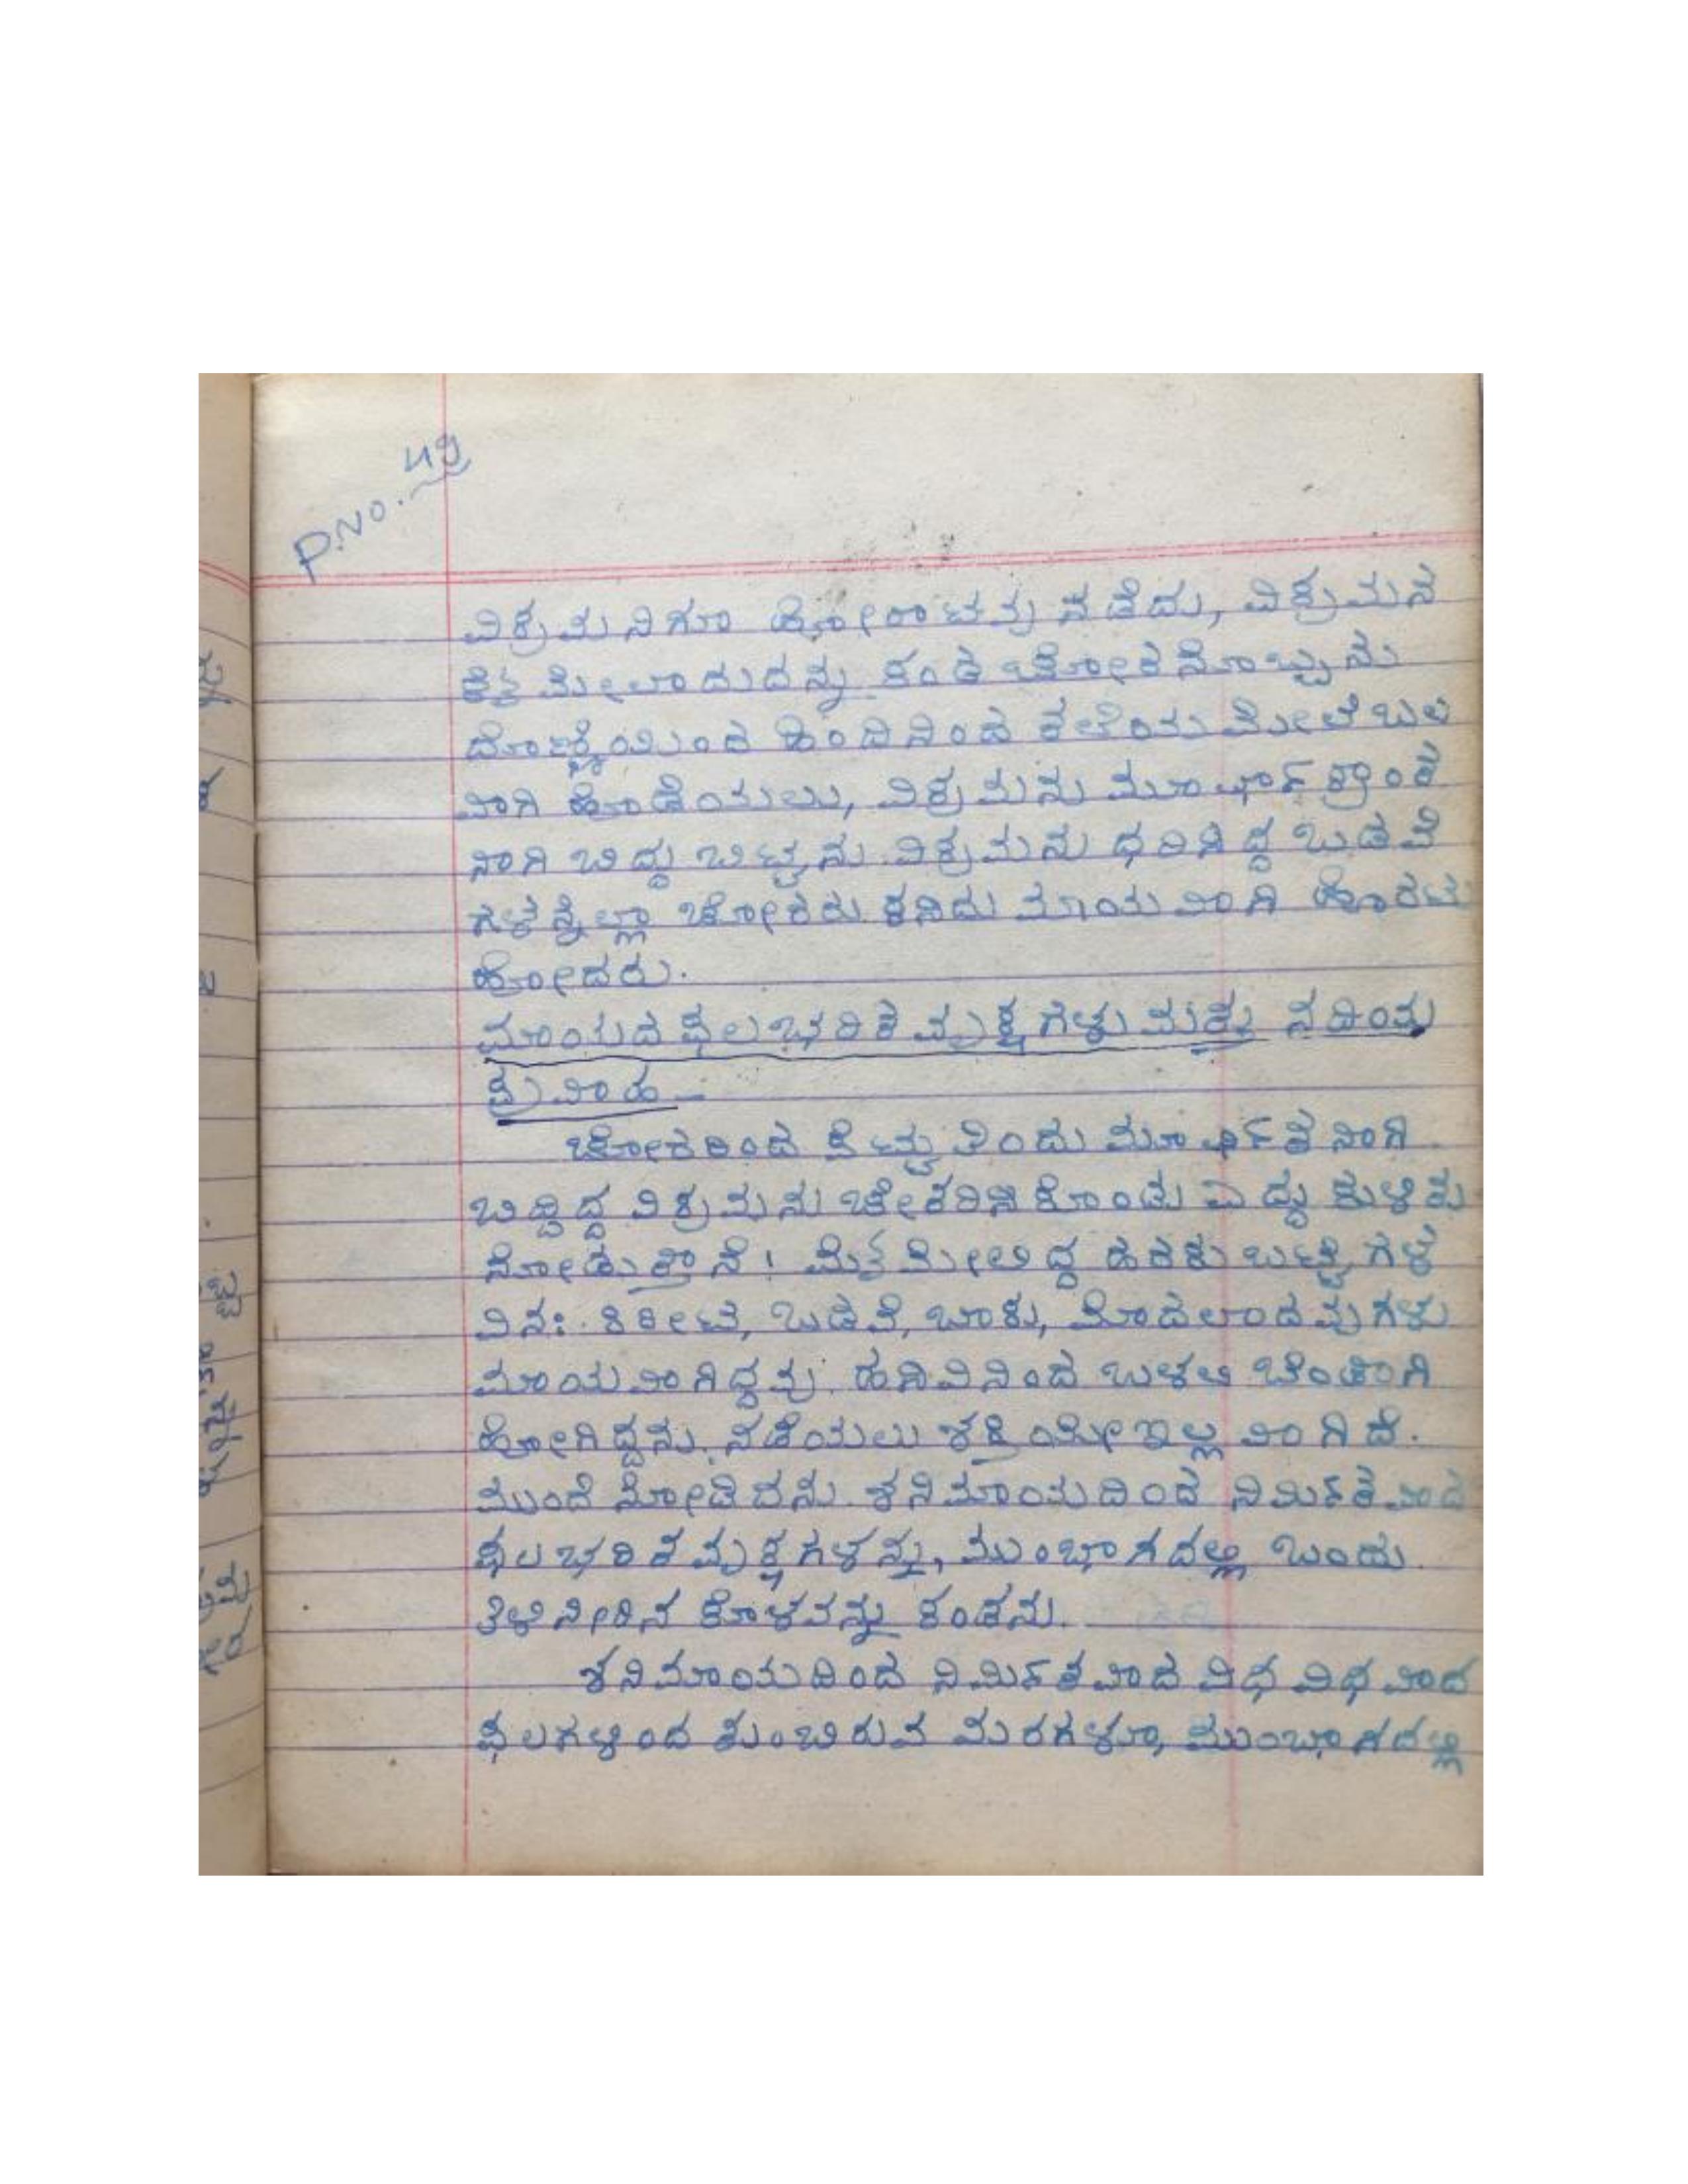 P.No. 49
ವಿಕ್ರಮನಿಗೂ ಹೋರಾಟವು ನಡೆದು, ವಿಕ್ರಮನ
ಕೈ ಮೇಲಾದುದನ್ನು ಕಂಡ ಚೋರನೊಬ್ಬನು
ದೊಣ್ಣೆಯಿಂದ ಹಿಂದಿನಿಂದ ತಲೆಯ ಮೇಲೆ ಬಲ
ವಾಗಿ ಹೊಡೆಯಲು, ವಿಕ್ರಮನು ಮೂರ್ಛಾಕ್ರಾಂತ
ನಾಗಿ ಬಿದ್ದು ಬಿಟ್ಟನು. ವಿಕ್ರಮನು ಧರಿಸಿದ್ದ ಒಡವೆ
ಗಳನ್ನೆಲ್ಲಾ ಚೋರರು ಕಸಿದು ಮಾಯವಾಗಿ ಹೊರಟು
ಹೋದರು.
ಮಾಯದ ಫಲಭರಿತ ವೃಕ್ಷಗಳು ಮತ್ತು ನದಿಯ
ಪ್ರವಾಹ —
ಚೋರರಿಂದ ಪೆಟ್ಟು ತಿಂದು ಮೂರ್ಛಿತನಾಗಿ
ಬಿದ್ದಿದ್ದ ವಿಕ್ರಮನು ಚೇತರಿಸಿಕೊಂಡು ಎದ್ದು ಕುಳಿತು
ನೋಡುತ್ತಾನೆ! ಮೈಮೇಲಿದ್ದ ಹರಕು ಬಟ್ಟೆಗಳ
ವಿನಃ ಕಿರೀಟ, ಒಡವೆ, ಬಾಕು, ಮೊದಲಾದವುಗಳು
ಮಾಯವಾಗಿದ್ದವು. ಹಸಿವಿನಿಂದ ಬಳಲಿ ಬೆಂಡಾಗಿ
ಹೋಗಿದ್ದನು. ನಡೆಯಲು ಶಕ್ತಿಯೇ ಇಲ್ಲವಾಗಿದೆ.
ಮುಂದೆ ನೋಡಿದನು. ಶನಿಮಾಯದಿಂದ ನಿರ್ಮಿತವಾದ
ಫಲಭರಿತ ವೃಕ್ಷಗಳನ್ನು, ಮುಂಭಾಗದಲ್ಲಿ ಒಂದು
ತಿಳಿನೀರಿನ ಕೊಳವನ್ನು ಕಂಡನು.
ಶನಿಮಾಯದಿಂದ ನಿರ್ಮಿತವಾದ ವಿಧ ವಿಧವಾದ
ಫಲಗಳಿಂದ ತುಂಬಿರುವ ಮರಗಳೂ, ಮುಂಭಾಗದಲ್ಲಿ